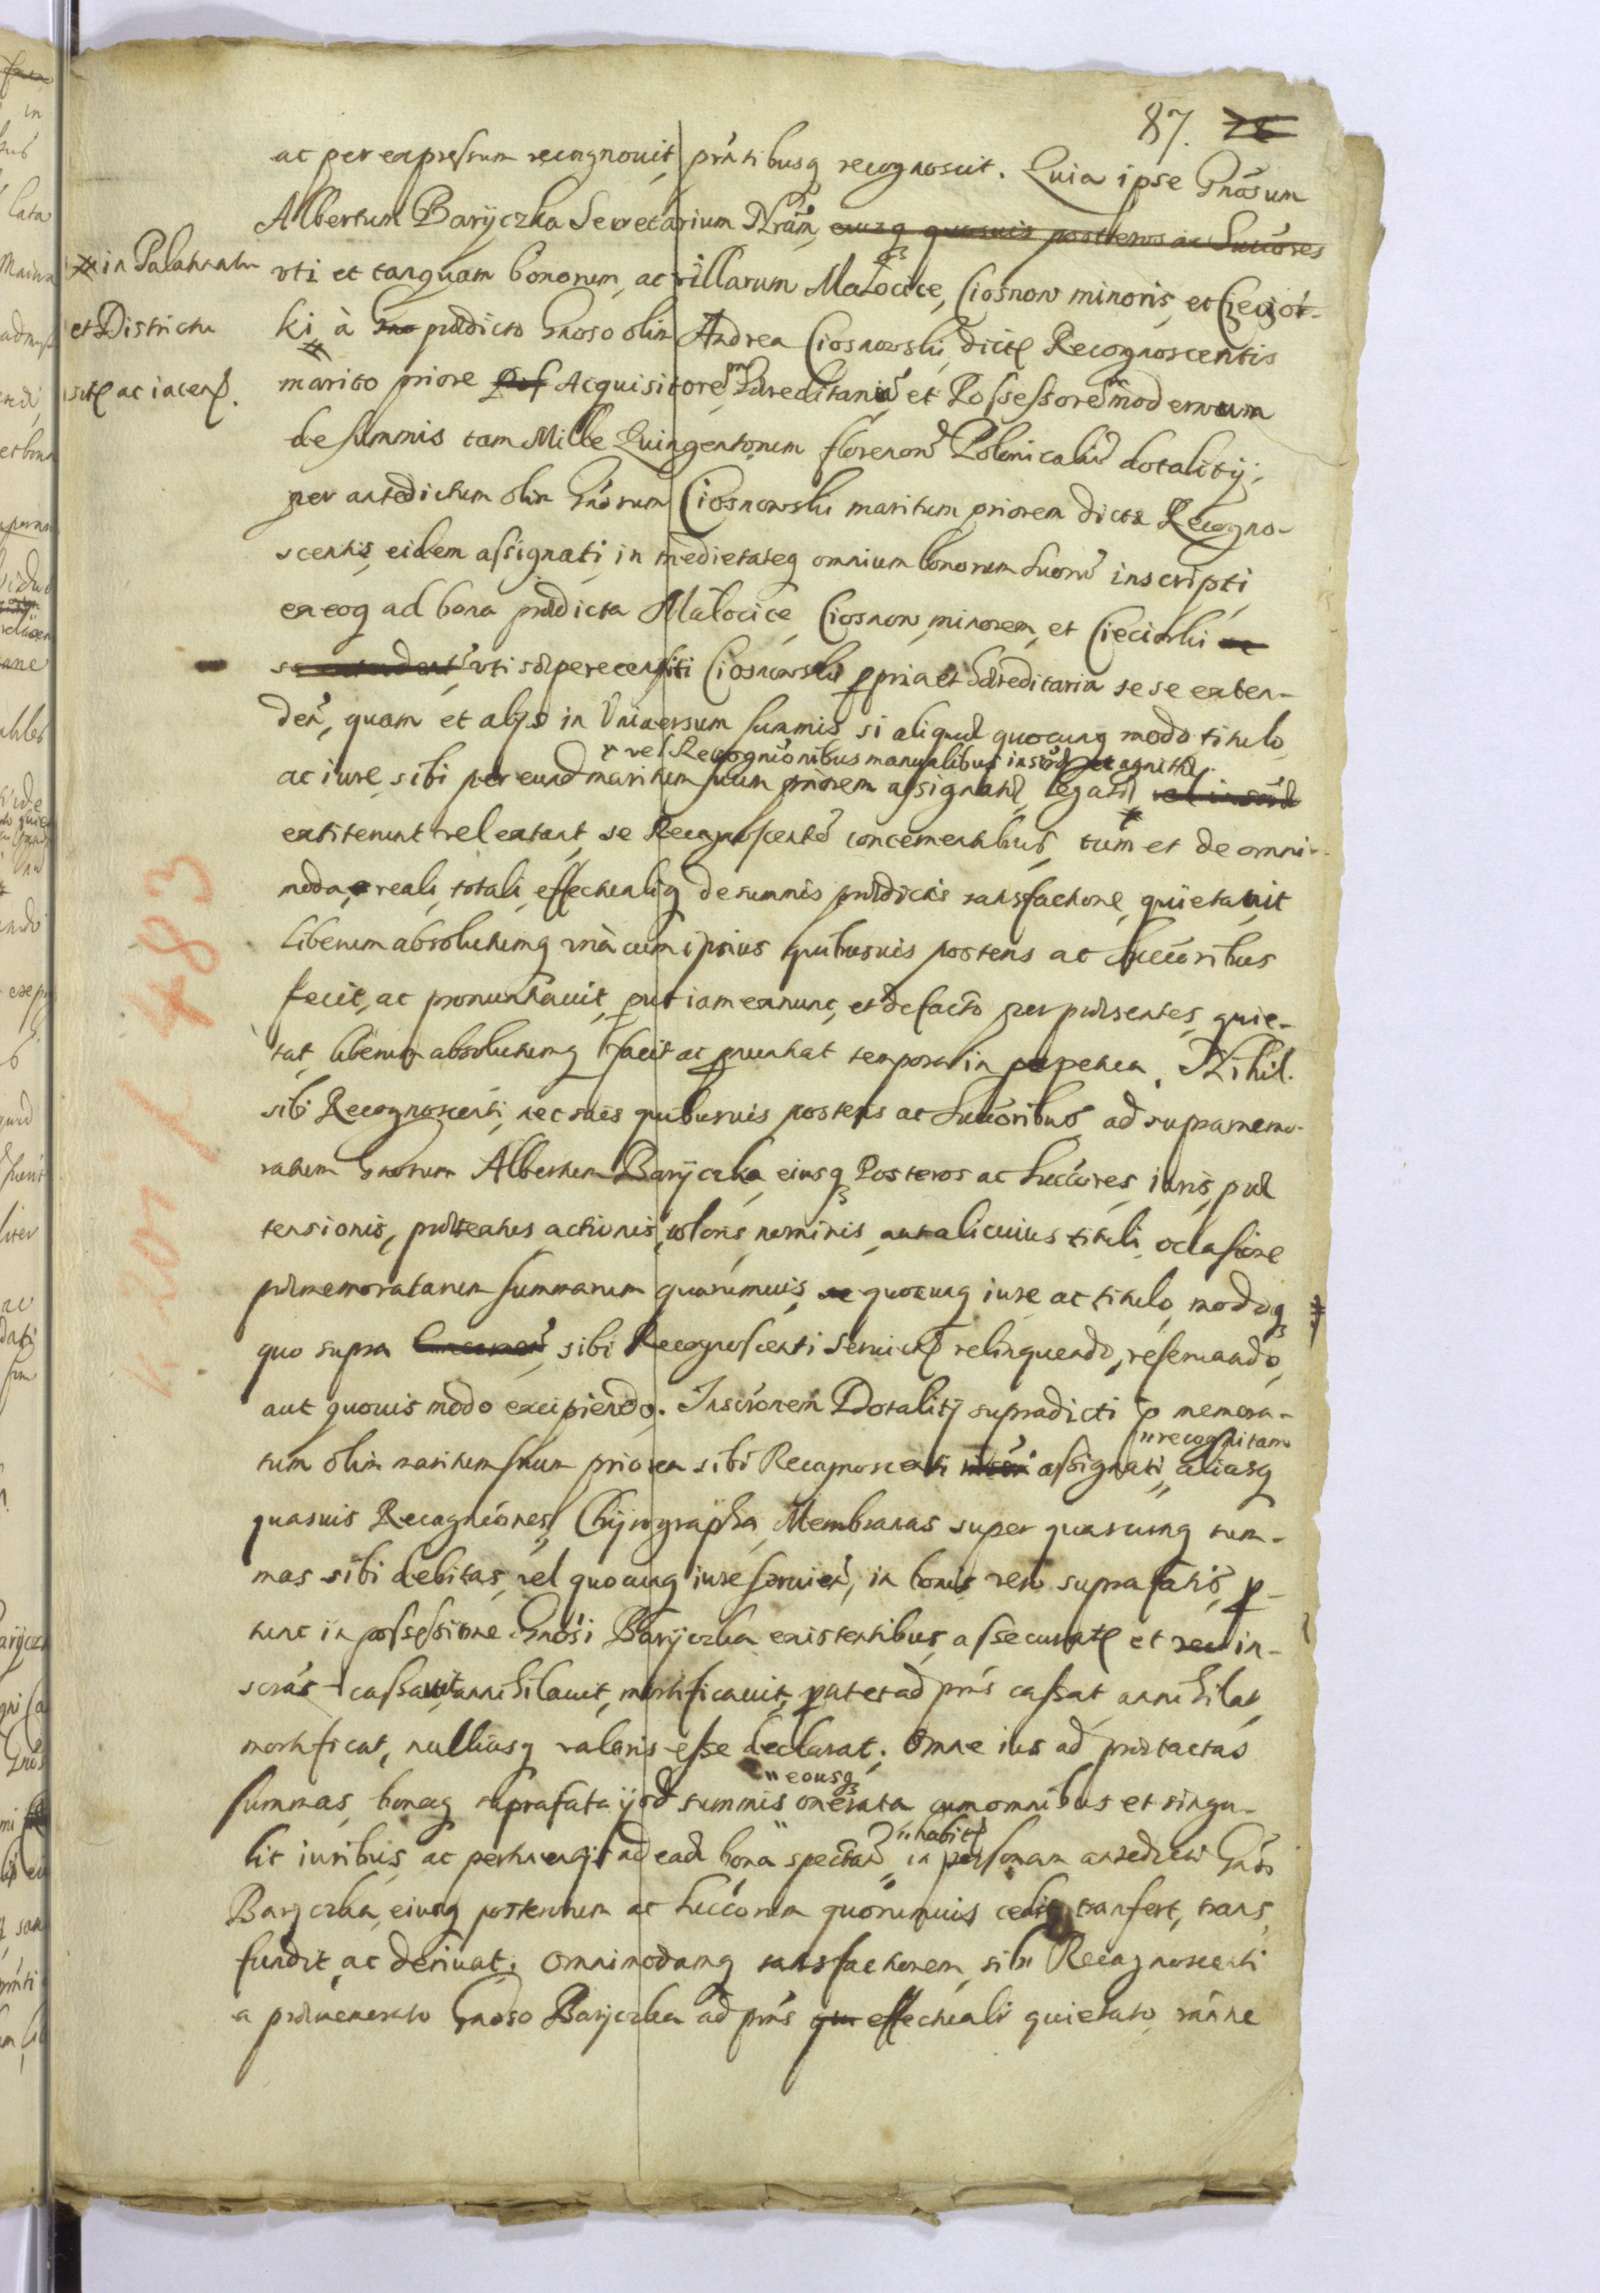 87. 78
ac per expressum recognouit, prntibusq recognoscit. Quia ipse Gnosum
Albertum Baryczka Secretarium Nrum, eiusq quosuis posteros ac Succores
# in Palatinatu
vti et tanquam bonorum, ac villarum Małocice, Ciosnow minoris, et Cieciór-
et Districtu
ki à Gno prædicto Gnoso olim Andrea Ciosnowski, dictę Recognoscentis
sitę ac iacen.
marito priore Pos Acquisitore Hæreditariu et Possessore modernum
de summis tam Mille Quingentorum florenor Polonicaliu dotalitij,
per antedictum olim Gnosum Ciosnowski maritum priorem dictæ Recogno-
scentis, eidem assignati, in medietateq omnium bonorum suoru inscripti
ex eoq ad bona prædicta Małocice, Ciosnow, minorem, et Cieciorki
se extendent, vti sæpe recensiti Ciosnowski ppria et Hæreditaria se se exten-
den, quam et alijs in Vniuersum summis si aliquæ quocunq modo titulo
# vel Recognionibus manualibus inscr et agnitæ
ac iure, sibi per eund maritum suum priorem assignatæ, legatæ, vel inscr
extiterunt vel extant, se Recognoscente concernentibus, tum et de omni-
moda, reali, totali, effectualiq de summis prædictis satisfactione, quietauit
liberum absolutumq vnà cum ipsius quibusuis posteris ac succoribus
fecit, ac pronuntiauit, put iam ex nunc, et de facto per præsentes, quie-
tat, liberum absolutumq facit ac pnuntiat temporà in perpetua. Nihil
sibi Recognoscenti, nec suis quibusuis posteris ac Succoribus ad supramemo-
ratum Gnosum Albertum Baryczka, eiusq Posteros ac Succores, iuris, præ
tensionis, prætextus, actionis, coloris, nominis, aut alicuius tituli, occasione
præmemoratarum summarum quarumuis, quocunq iure ac titulo, modoq
quo supra sibi Recognoscenti seruientę relinquendo, reseruando,
aut quouis modo excipiendo. Inscrionem Dotalitij supradicti p memora-
" recognitam
tum olim maritum suum priorem sibi Recognoscenti inscri assignati, aliasq
quasuis Recogniones, Chyrographa, Membranas super quascunq sum-
mas sibi debitas, vel quocunq iure seruien, in bonis vero suprafatis, p-
tunc in possessione Gnosi Baryczka existentibus, assecuratę et in-
scras cassauit, annihilauit, mortificauit, put et ad prns cassat, annihilat,
mortificat, nulliusq valoris esse declarat. Omne ius ad prætactas
" eousq
summas, bonaq suprafata ijsd summis onerata cum omnibus et singu-
" habitę
lis iuribus, ac pertinentijs ad ead bona spectan, in personam antedicti Gnosi
Baryczka, eiusq posterorum ac succorum quorumuis cedit, transfert, trans
fundit, ac deriuat. Omnimodamq satisfactionem, sibi Recognoscenti
a præmemorato Gnoso Baryczka ad prns effectuali quietato,
h 201 f 483